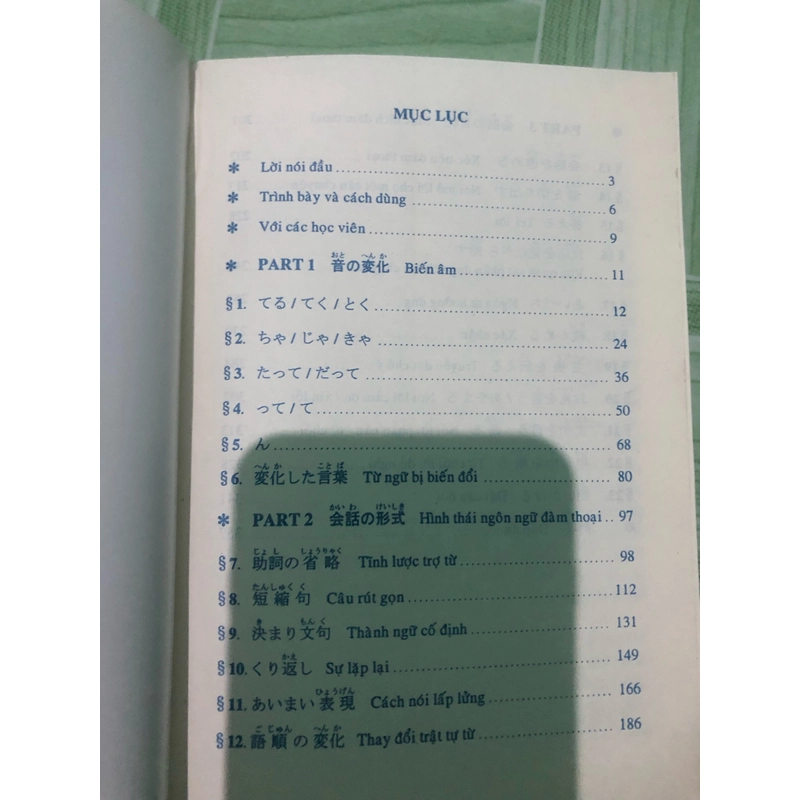 MỤC LỤC
* Lời nói đầu 3
* Trình bày và cách dùng 6
* Với các học viên 9
* PART 1 音の変化 Biến âm 11
§1. てる/てく/とく 12
§2. ちゃ/じゃ/きゃ 24
§3. たって/だって 36
§4. って/て 50
§5. ん 68
§6. 変化した言葉 Từ ngữ bị biến đổi 80
* PART 2 会話の形式 Hình thái ngôn ngữ đàm thoại 97
§7. 助詞の省略 Tĩnh lược trợ từ 98
§8. 短縮句 Câu rút gọn 112
§9. 決まり文句 Thành ngữ cố định 131
§10. くり返し Sự lặp lại 149
§11. あいまい表現 Cách nói lấp lửng 166
§12. 語順の変化 Thay đổi trật tự từ 186